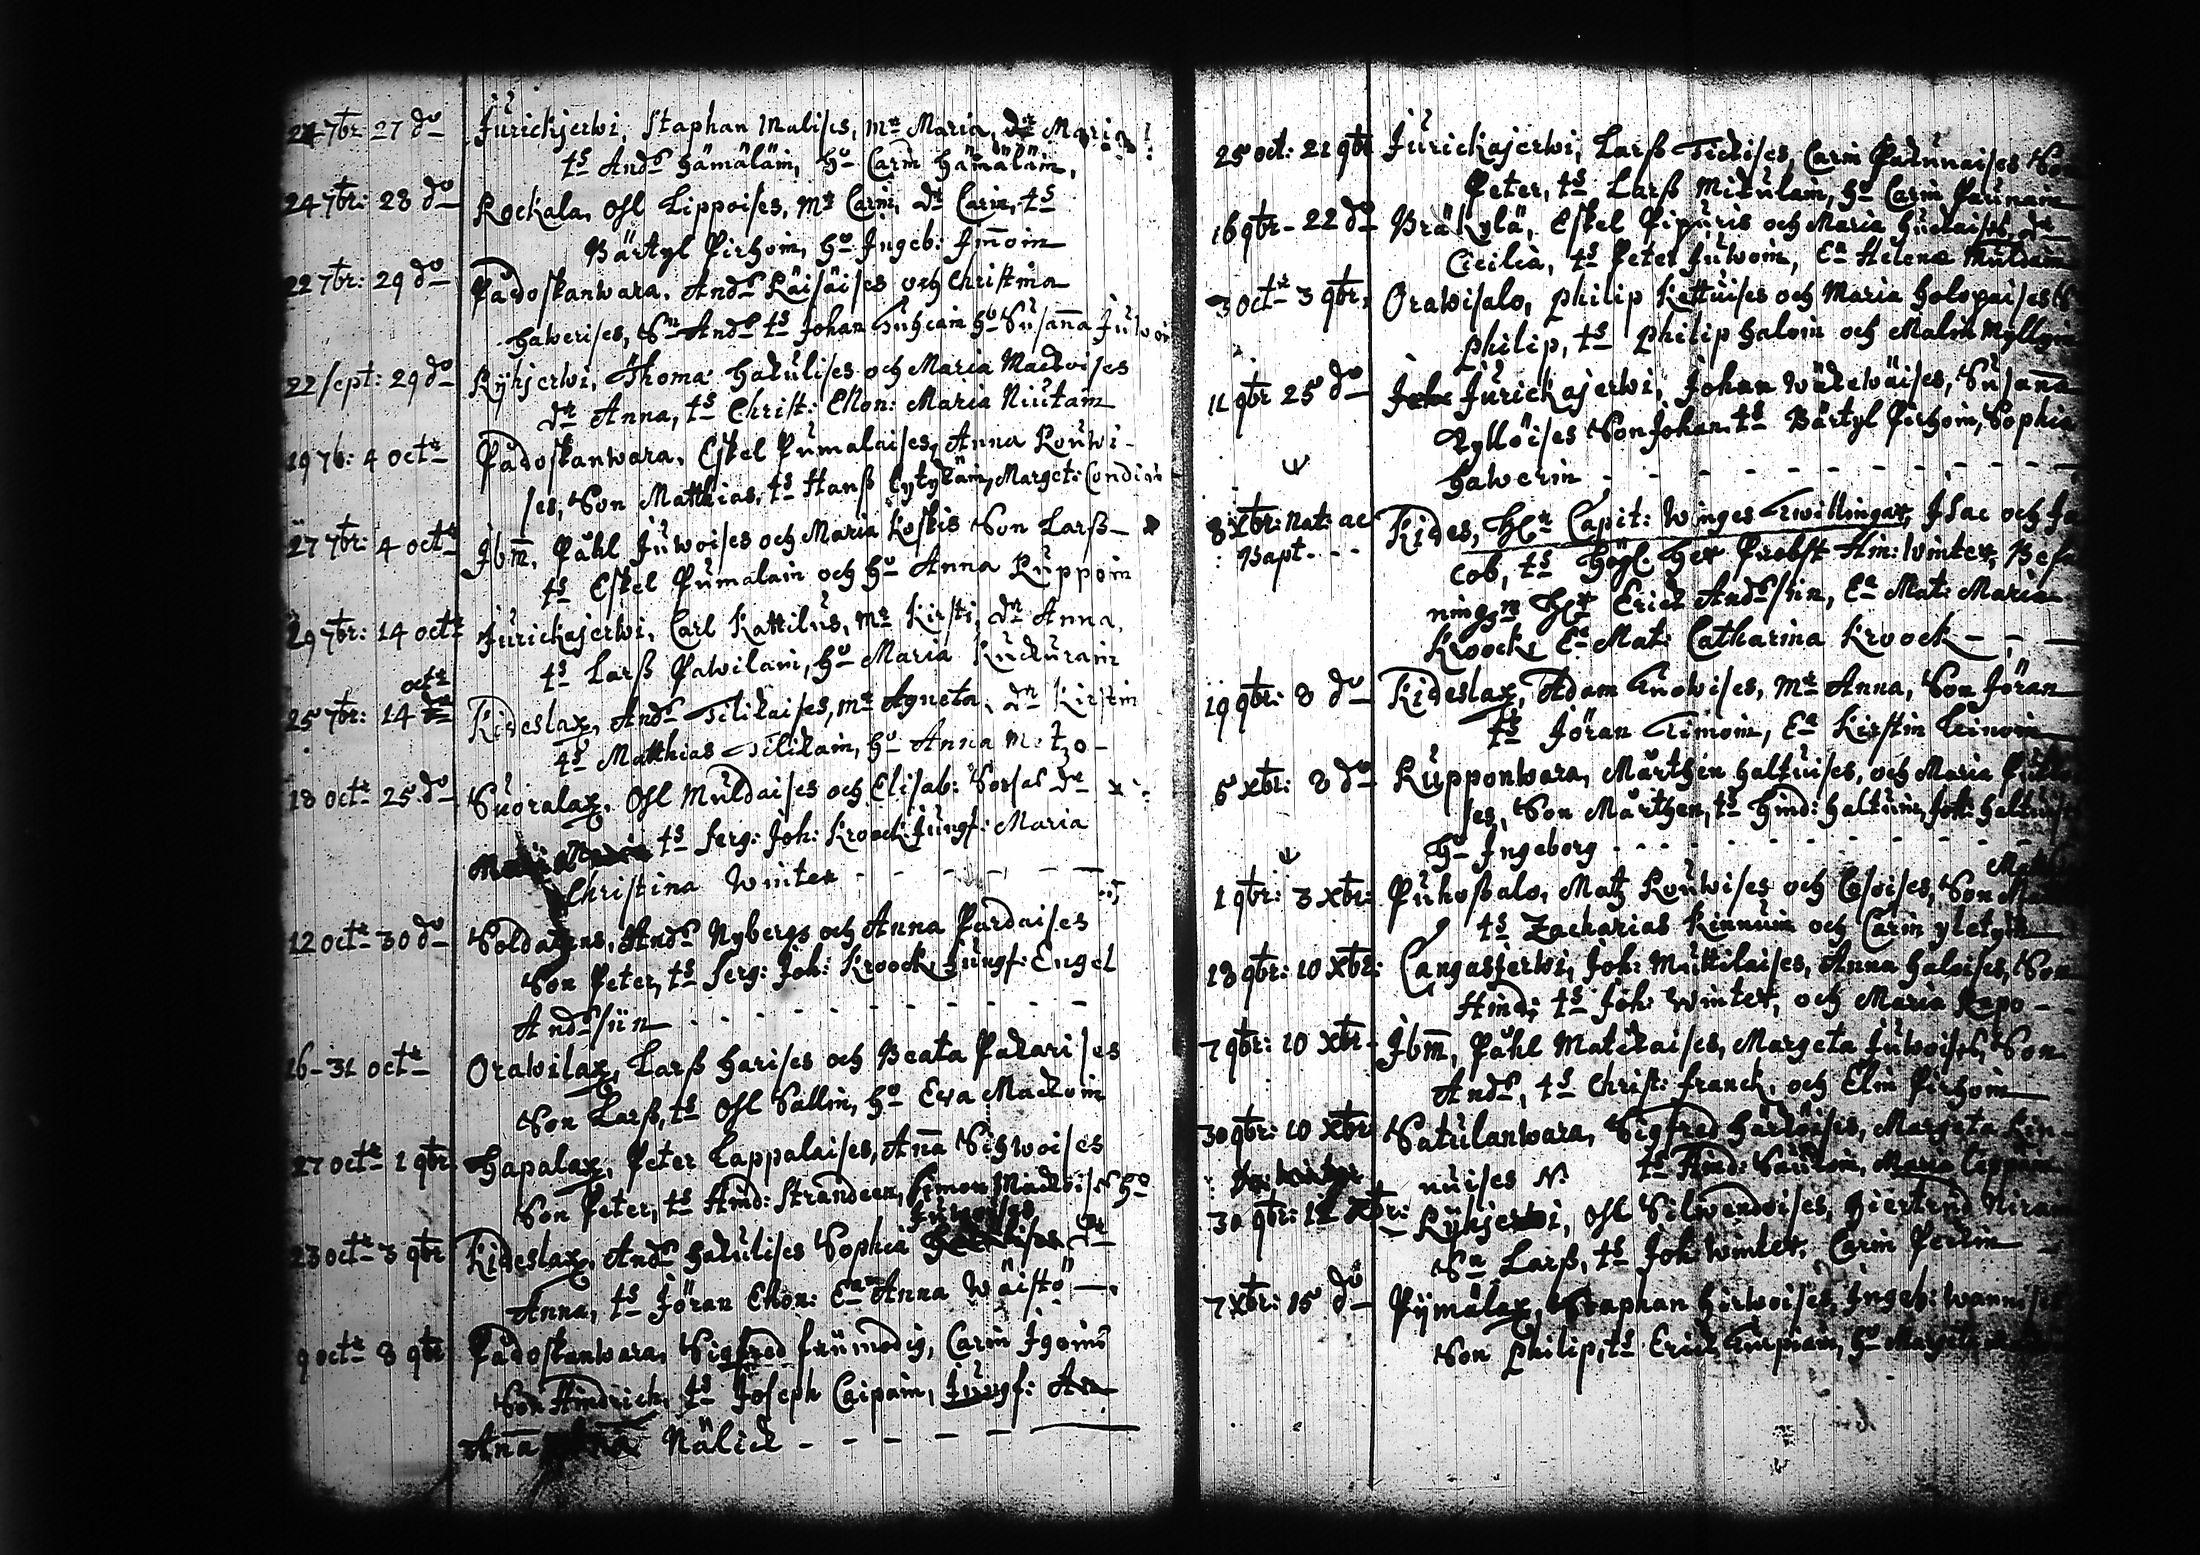 24 7br: 27 do Jurickjerwi, Staphan Malises, mr Maria, dr Maria
ts Ands Hämäläin, ho Carin Hämäläin,
24 7br: 28 do Rockala, Ohl Lippoises, mr Carin, dr Carin, ts
Bärtyl Pirhoin, ho Ingeb: Imoin
22 7br: 29 do Padoskanwara, Ands Räisäises och Christina
Hawerises, Sn Ands ts Johan Tuhcain ho Susanna Juwoin
22 sept: 29 do Ryhjerwi, Thoma Hakulises och Maria Mackoises
dr Anna, ts Christ: Ellon: Maria Niutain
19 7b: 4 octr Padoskanwara, Eskel Pumalaises, Anna Rouwi-
ses, Son Matthias, ts Hanß Cytykäin, Marget: Condiain
27 7br: 4 octr Ibm, Påhl Juwoises och Maria Koskis Son Larß
ts Eskel Pumalain och ho Anna Ruppoin
29 7br: 14 octr Jurickajerwi, Carl Kattilus, mr Kirsti, dr Anna,
ts Larß Pawilain, ho Maria Kuckurain
octr
25 7br: 14 Kideslax, Ands Tilikaises, mr Agneta, dr Kirstin
ts Matthias Tilikain, ho Anna Motzo-
18 octr 25 do Suoralax, Ohl Muldaises och Elisab: Sorsas dr
ts serg: Joh: Kroock Jungf: Maria
Christina Winter
12 octr 30 do Soldatens, Ands Nybergs och Anna Pardaises
Son Peter, ts serg: Joh: Kroock, Jungf: Engel
Andssiin
16 - 31 octr Orawilax, Larß Harises och Beata Pakarises
Son Larß, ts Ohl Sallin, ho Eva Mackoin
27 octr 1 9br Hapalax, Peter Lappalaises, Anna Sihwoises
Son Peter, ts Hind: Strandeen, Simon Mackoises ho
Juwoises
23 octr 3 9br Kideslax, Ands Hakulises Sophia dr
Anna, ts Jöran Ehon: Ea Anna Wäistö
9 octr 8 9br Padoskanwara, Sigfred frumodig, Carin Igoins
Son Hindrich, ts Joseph Caipain, Jungf: An
Anna Nälick
25 oct: 21 9br Jurickajerwi, Larß Tickises, Carin Pakunaises Son
Peter, ts Larß Mikulain, ho Carin Paunain
16 9br - 22 do Bräkylä, Eskel Pipuris och Maria Huckaises, dr
Cicilia, ts Peter Juwoin, Ea Helena Muldain
3 octr 3 9br, Orawisalo, Philip Kettuises och Maria Holopaises
Philip, ts Philip Haloin och Malin Myllyin
11 9br 25 do Jurickajerwi, Johan Wäkewäises, Susanna
Kyllöises Son Johan, ts Bärtyl Pirhoin, Sophia
Hawerin
8 xbr: nat: ac Kides, Hr Capit: Winges Twillingar, Isac och Ja
Bapt. cob, ts Högl. Her Probst Hin: Winter, Befa
ningsm Hr Erick Andssin, Ea Mat: Maria
Kroock, Ea Mat: Catharina Kroock
19 9br: 8 do Kideslax, Adam Tuowises, mr Anna, Son Jöran
ts Jöran Timoin, Ea Kirstin Leinoin
5 xbr: 8 do Rupponwara, Mårthen Haltuises, och Maria
ses, Son Mårthen, ts Hind: Haltuin, Joh: Haltuises
ho Ingeborg
1 9br: 3 xbr: Puhoßalo, Matz Rouwises och Cosoises, Son
ts Zacharias Kinnuin och Carin yletyin
18 9br: 10 xbr: Cangasjerwi, Joh: Muttilaises, Anna Haloises, Son
Hind; ts Joh: Winter, och Maria Repo
7 9br: 10 xbr Ibm, Påhl Matckaises, Margeta Juwoises, Son
Ands, ts Christ: Franck, och Elin Pirhoin
30 9br: 10 xbr Satulanwara, Sigfred Härköises, Margeta Kin-
nuises N: ts Hind: Sauloin, Maria Leppäin
30 9br: 12 xbr: Ryhjerwi, Ohl Silwendoises, Giertrud Nirain
Sn Larß, ts Joh: Winter, Carin Peckin
7 xbr: 15 do Pijmälax, Staphan Hirwoises, Ingeb: Wannises
Son Philip, ts Erick Turpiain, ho Marget